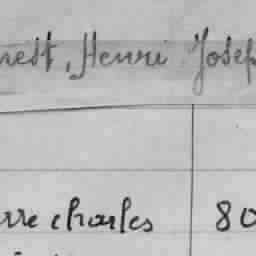 nest, Henri Josep
rre charles 80